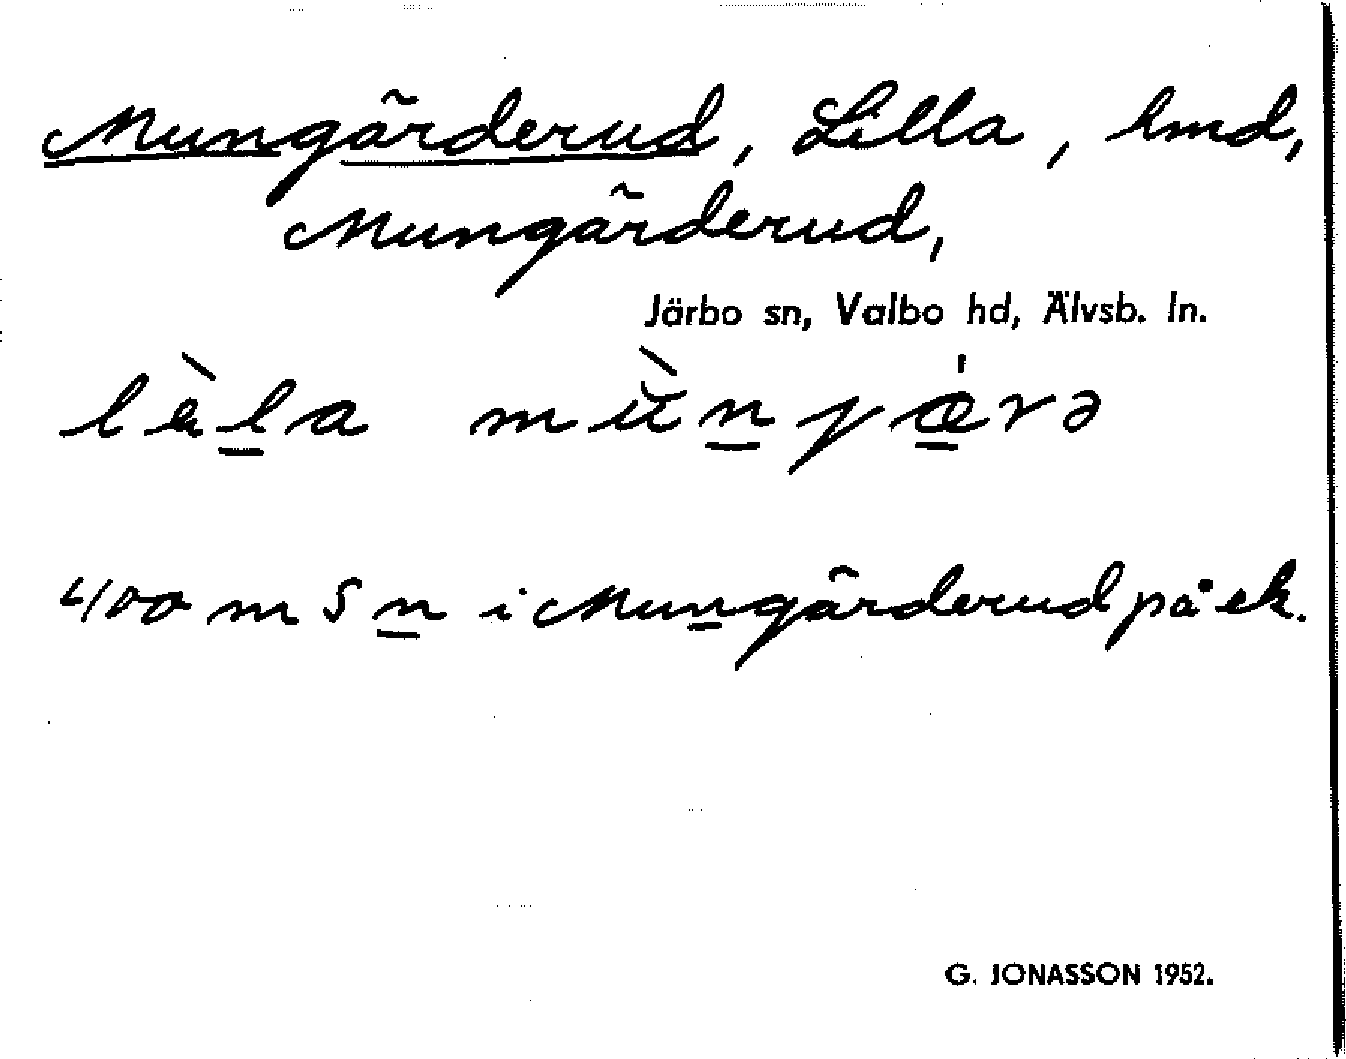 Mungärderud, Lilla, hmd,
Mungärderud,
Järbo sn, Valbo hd, Älvsb. ln.
lèla mùnjǽrə
400 m S n i Mungärderud på ek.
G. JONASSON 1952.